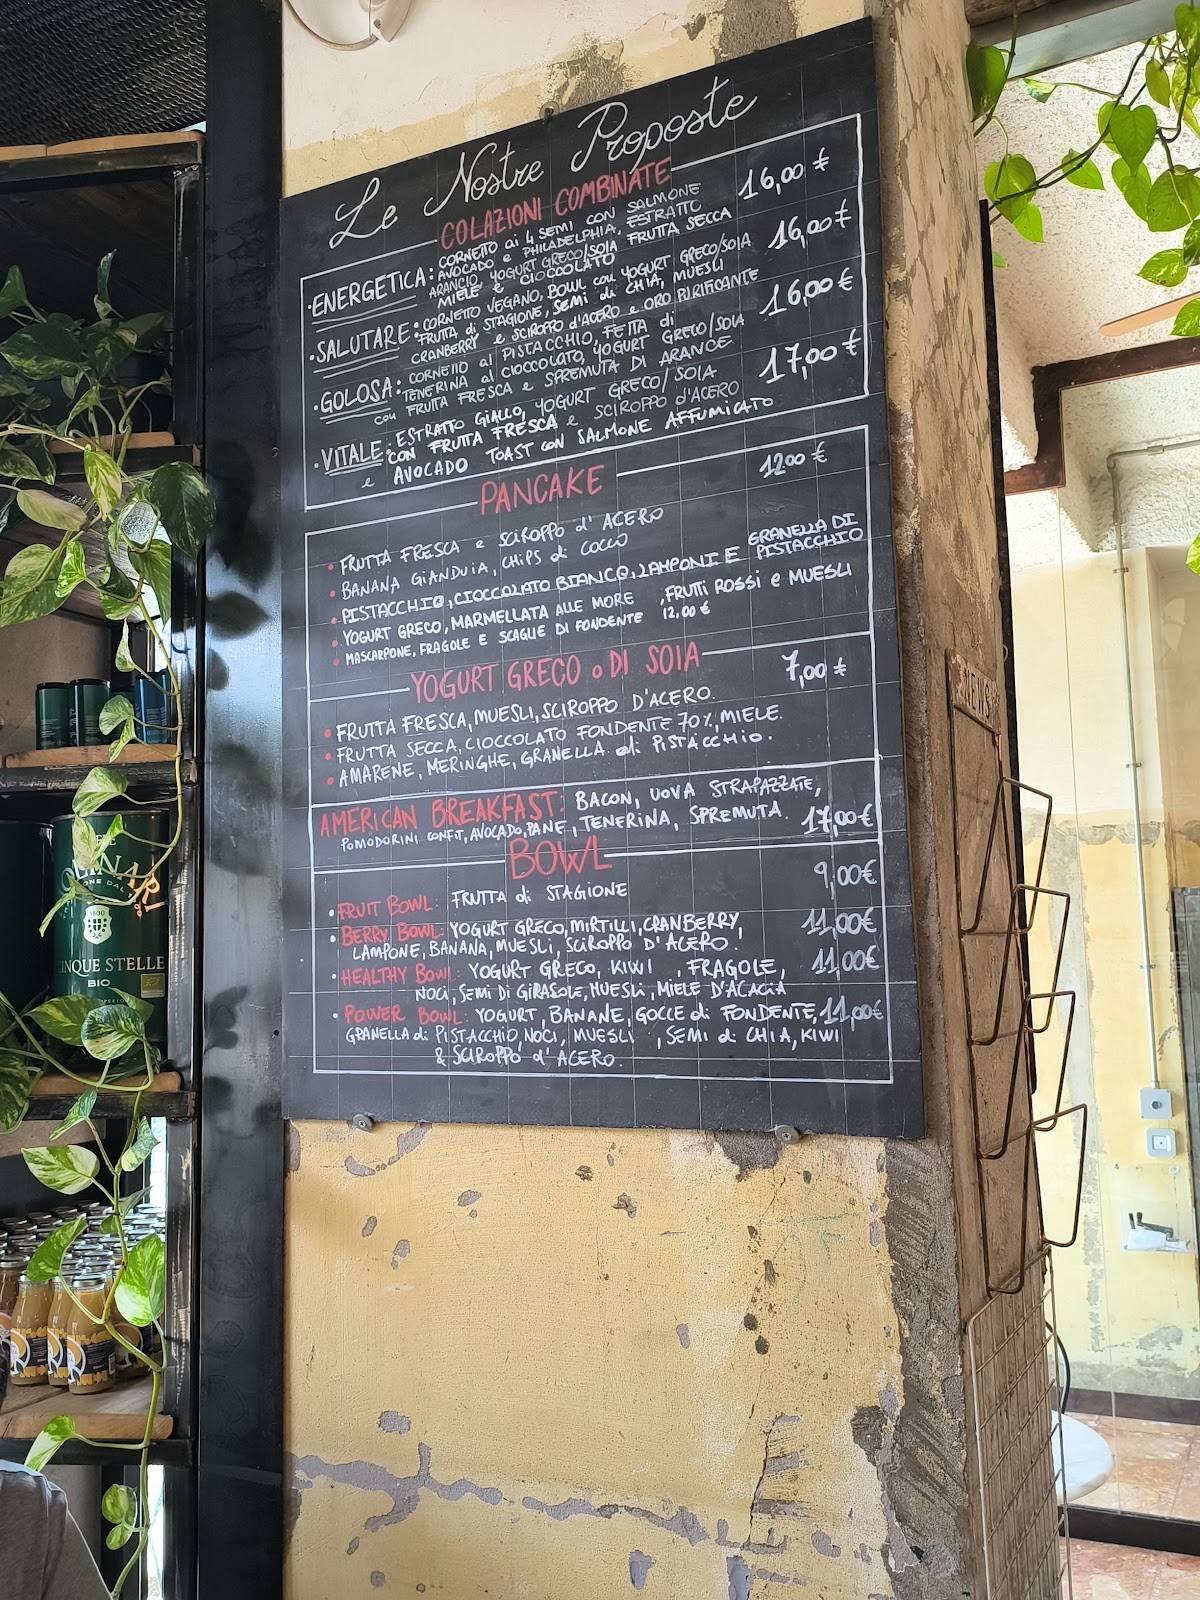 Le Nostre Proposte
COLAZIONI COMBINATE
• ENERGETICA: CORNETTO ai 4 SEMI CON SALMONE 16,00 €
AVOCADO e PHILADELPHIA, ESTRATTO
ARANCIO, YOGURT GRECO/SOIA FRUTTA SECCA
MIELE e CIOCCOLATO
• SALUTARE: CORNETTO VEGANO, BOWL con YOGURT GRECO/SOIA 16,00 €
FRUTTA di STAGIONE, SEMI di CHIA, MUESLI
CRANBERRY e SCIROPPO d'ACERO e ORO PURIFICANTE
• GOLOSA: CORNETTO al PISTACCHIO, FETTA di 16,00 €
TENERINA al CIOCCOLATO, YOGURT GRECO/SOIA
con FRUTTA FRESCA e SPREMUTA DI ARANCE
• VITALE: ESTRATTO GIALLO, YOGURT GRECO/SOIA 17,00 €
CON FRUTTA FRESCA e SCIROPPO d'ACERO
e AVOCADO TOAST CON SALMONE AFFUMICATO
PANCAKE 12,00 €
• FRUTTA FRESCA e SCIROPPO d'ACERO
• BANANA GIANDUIA, CHIPS di COCCO
• PISTACCHIO, CIOCCOLATO BIANCO, LAMPONI E GRANELLA DI PISTACCHIO
• YOGURT GRECO, MARMELLATA ALLE MORE , FRUTTI ROSSI e MUESLI
• MASCARPONE, FRAGOLE E SCAGLIE DI FONDENTE 12,00 €
YOGURT GRECO o DI SOIA 7,00 €
• FRUTTA FRESCA, MUESLI, SCIROPPO D'ACERO.
• FRUTTA SECCA, CIOCCOLATO FONDENTE 70%, MIELE.
• AMARENE, MERINGHE, GRANELLA di PISTACCHIO.
AMERICAN BREAKFAST: BACON, UOVA STRAPAZZATE,
POMODORINI CONFIT, AVOCADO, PANE, TENERINA, SPREMUTA. 17,00€
BOWL
• FRUIT BOWL: FRUTTA di STAGIONE 9,00€
• BERRY BOWL: YOGURT GRECO, MIRTILLI, CRANBERRY, 11,00€
LAMPONE, BANANA, MUESLI, SCIROPPO D'ACERO.
• HEALTHY BOWL: YOGURT GRECO, KIWI , FRAGOLE, 11,00€
NOCI, SEMI DI GIRASOLE, MUESLI, MIELE D'ACACIA
• POWER BOWL: YOGURT, BANANE, GOCCE di FONDENTE, 11,00€
GRANELLA di PISTACCHIO, NOCI, MUESLI , SEMI di CHIA, KIWI
& SCIROPPO d'ACERO.
NEWS
1800
CINQUE STELLE
BIO